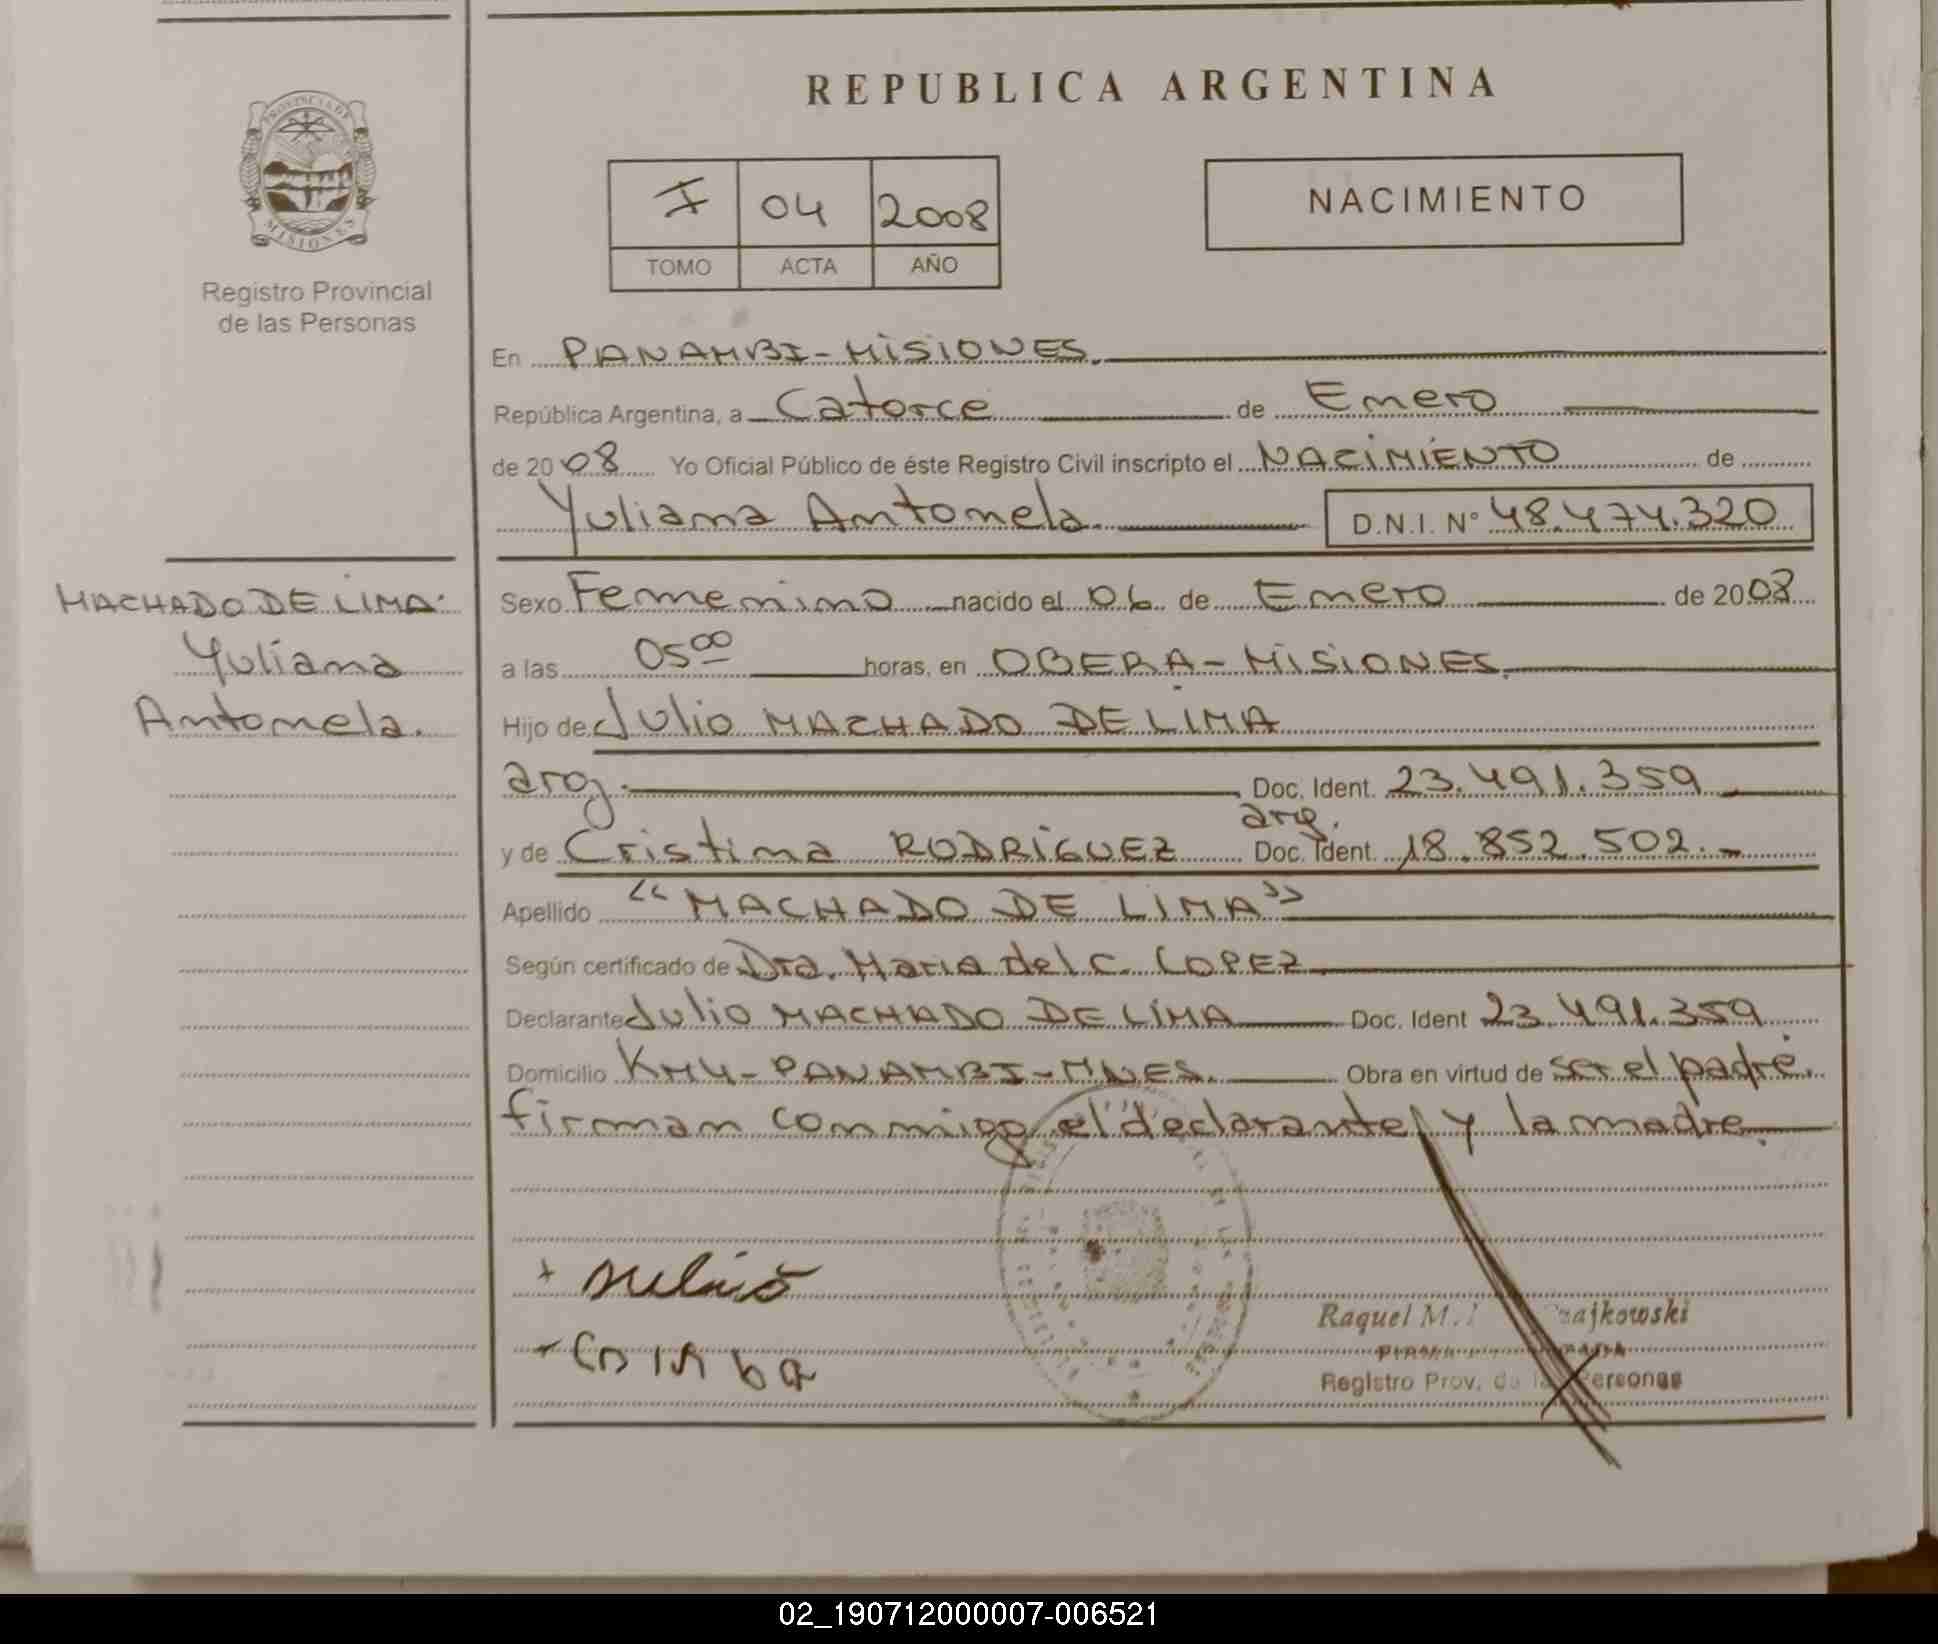 REPUBLICA ARGENTINA
PROVINCIA DE
MISIONES
Registro Provincial
de las Personas
I 04 2008
TOMO ACTA AÑO
NACIMIENTO
En PANAMBI - MISIONES.
República Argentina, a Catorce de Enero
de 2008 Yo Oficial Público de éste Registro Civil inscripto el NACIMIENTO de
Yuliana Antonela. D.N.I. N° 48.474.320
MACHADO DE LIMA.
Yuliana
Antonela.
Sexo Femenino nacido el 06 de Enero de 2008
a las 05 00 horas, en OBERA - MISIONES.
Hijo de Julio MACHADO DE LIMA
arg. Doc. Ident. 23.491.359
arg.
y de Cristina RODRIGUEZ Doc. Ident. 18.852.502.-
Apellido "MACHADO DE LIMA"
Según certificado de Dra. Maria del C. LOPEZ
Declarante Julio MACHADO DE LIMA Doc. Ident 23.491.359
Domicilio KM4 - PANAMBI - MNES. Obra en virtud de ser el padre.
firman conmigo el declarante y la madre.
Raquel M.
Registro Prov. de la Personas
02_190712000007-006521